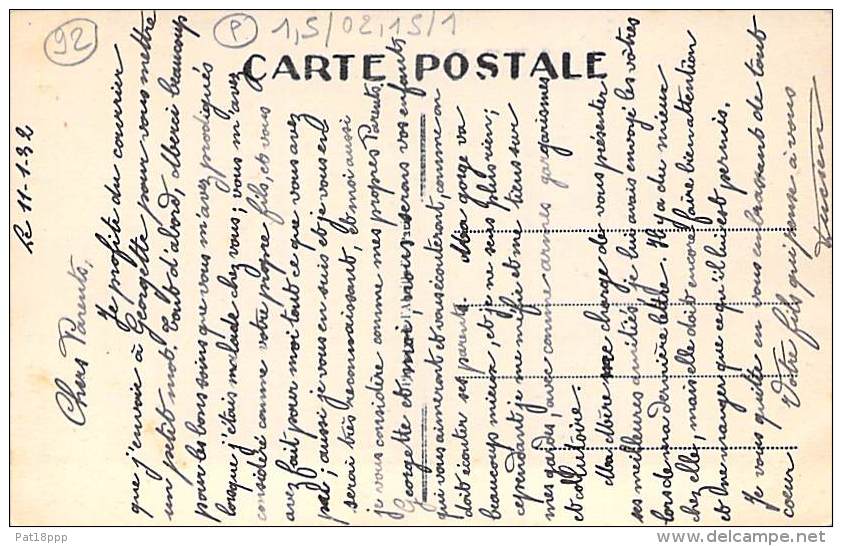 92
P
1,5/02,15/1
CARTE POSTALE
Le 11-1-32
Chers Parents,
Je profite du courrier
que j'envoie à Georgette pour vous mettre
un petit mot. Tout d'abord, merci beaucoup
pour les bons soins que vous m'avez prodigués
lorsque j'étais malade chez vous; vous m'avez
considéré comme votre propre fils, et vous
avez fait pour moi tout ce que vous avez
pu; aussi je vous en suis et je vous en
serai très reconnaissant, et moi aussi
je vous considère comme mes propres Parents,
Georgette et moi, nous serons vos enfants
qui vous aimeront et vous écouteront, comme on
doit écouter ses parents. Ma gorge va
beaucoup mieux, et je ne sens plus rien;
cependant je me méfie et me tiens sur
mes gardes, avec comme armes gargarismes
et collutoire.
Ma Mère me charge de vous présenter
ses meilleures amitiés, je lui avais envoyé les vôtres
lors de ma dernière lettre. Il y a du mieux
chez elle, mais elle doit encore faire bien attention
et ne manger que ce qu'il lui est permis.
Je vous quitte en vous embrassant de tout
coeur. Votre fils qui pense à vous
Pat18ppp
delcampe.net